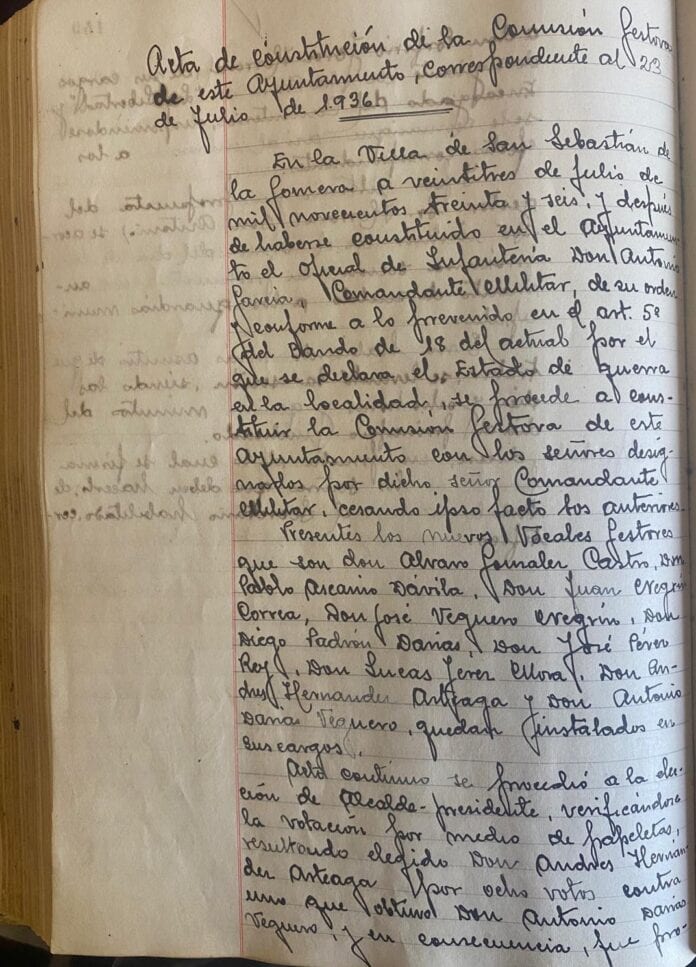 Acta de constitución de la Comisión Gestora
de este Ayuntamiento, correspondiente al 23
de Julio de 1.936
En la Villa de San Sebastián de
la Gomera a veintitres de Julio de
mil novecientos treinta y seis, y después
de haberse constituido en el Ayuntamien-
to el Oficial de Infantería Don Antonio
García, Comandante Militar, de su orden
y conforme a lo prevenido en el art. 5º
del Bando de 18 del actual por el
que se declara el Estado de guerra
en la localidad, se procede a cons-
tituir la Comisión Gestora de este
Ayuntamiento con los señores desig-
nados por dicho señor Comandante
Militar, cesando ipso facto los anteriores.
Presentes los nuevos Vocales Gestores
que son don Alvaro Gonzalez Castro, Don
Pablo Ascanio Dávila, Don Juan Negrín
Correa, Don José Veguero Negrín, Don
Diego Padrón Darias, Don José Pérez
Rey, Don Lucas Jerez Mora, Don An-
drés Hernandez Arteaga y Don Antonio
Darias Veguero, quedan instalados en
sus cargos.
Acto continuo se procedió a la elec-
ción de Alcalde-presidente, verificándose
la votación por medio de papeletas,
resultando elegido Don Andres Hernán-
dez Arteaga por ocho votos contra
uno que obtuvo Don Antonio Darias
Veguero, y en consecuencia, fue pro-